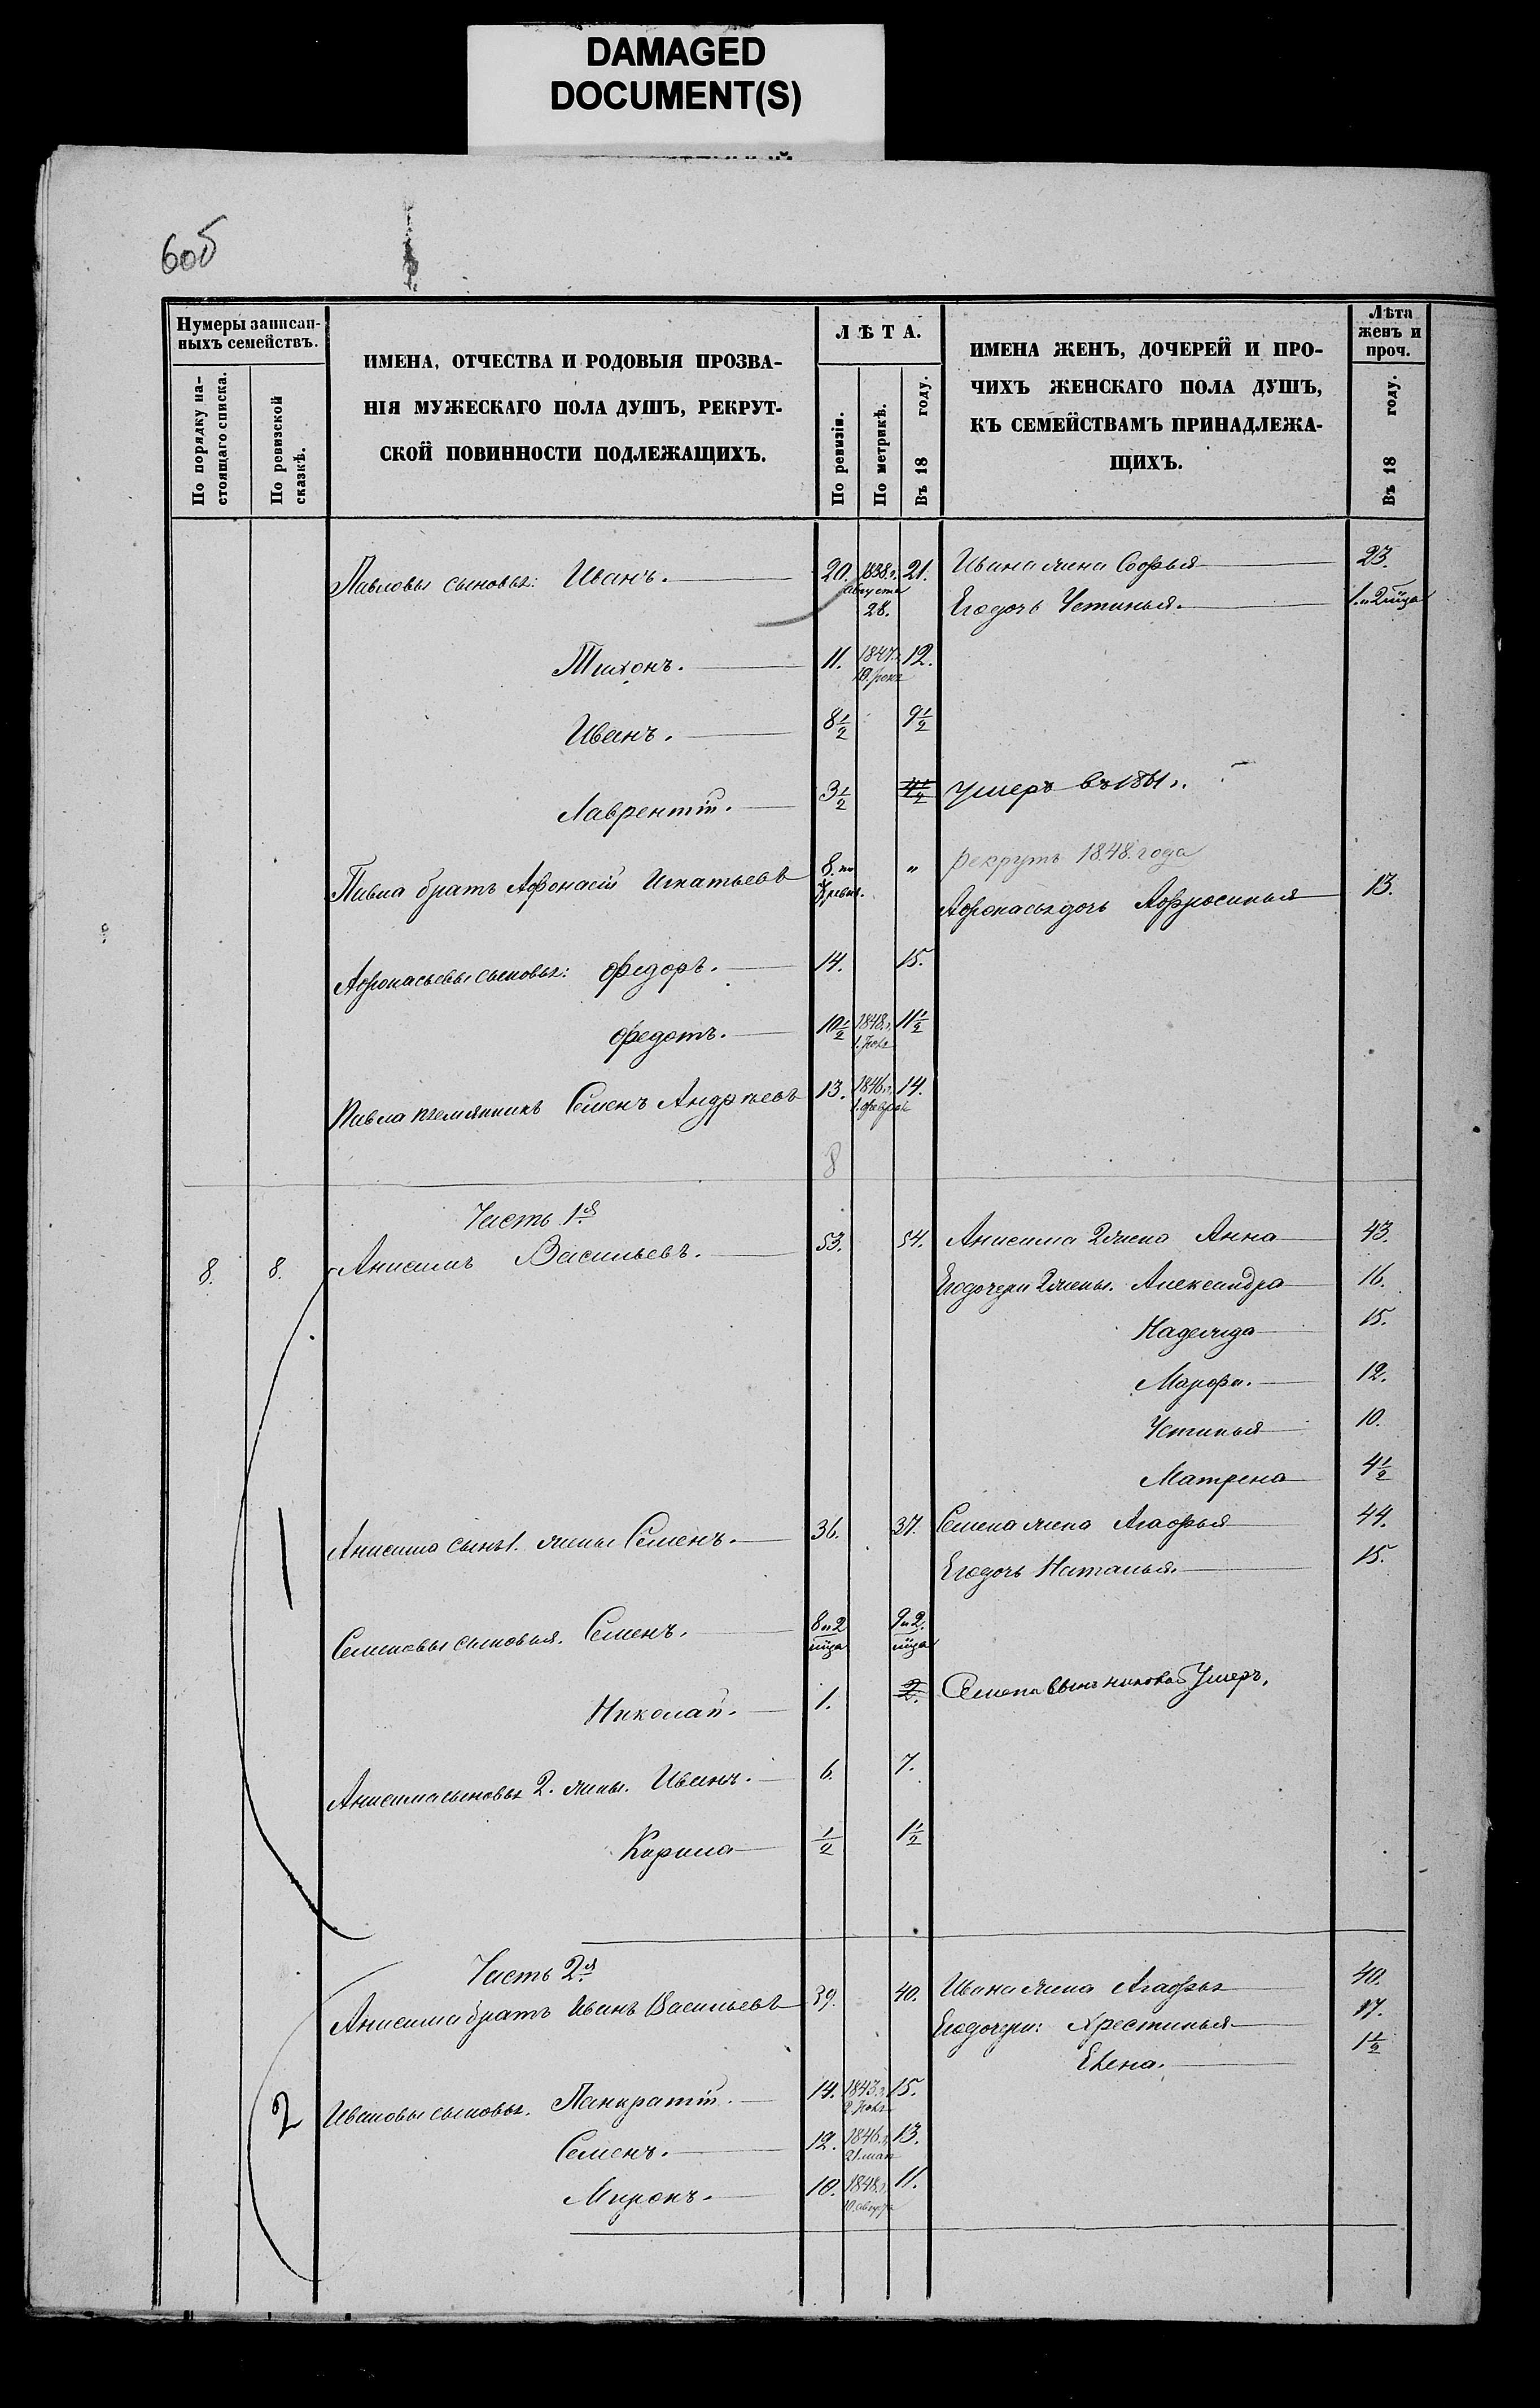 DAMAGED
DOCUMENT(S)
60б
Нумеры записан-
ныхъ семействъ.
По порядку на-
стоящаго списка.
По ревизской
сказкѣ.
ИМЕНА, ОТЧЕСТВА И РОДОВЫЯ ПРОЗВА-
НІЯ МУЖЕСКАГО ПОЛА ДУШЪ, РЕКРУТ-
СКОЙ ПОВИННОСТИ ПОДЛЕЖАЩИХЪ.
ЛѢТА.
По ревизіи.
По метрикѣ.
Въ 18 году.
ИМЕНА ЖЕНЪ, ДОЧЕРЕЙ И ПРО-
ЧИХЪ ЖЕНСКАГО ПОЛА ДУШЪ,
КЪ СЕМЕЙСТВАМЪ ПРИНАДЛЕЖА-
ЩИХЪ.
Лѣта
женъ и
проч.
Въ 18 году.
Павловы сыновья: Иванъ. 20. 1838 г. 21. Ивана жена Софья 23.
августа
28. Его дочь Устинья. 1. и 2 мца
Тихонъ. 11. 1847 г. 12.
Иванъ. 8 1/2 9 1/2
Лаврентій. 3 1/2 4 1/2 умеръ въ 1861 г.
Павла братъ Афонасій Игнатьевъ 8. по " рекрутъ 1848. года
Афонасья дочь Афросинья 13.
Афонасьевы сыновья: Федоръ. 14. 15.
Федотъ. 10 1/2 1848 г. 11 1/2
Павла племянникъ Семенъ Андреевъ 13. 1846 г. 14.
8
Часть 1я
8. 8. Анисимъ Васильевъ. 53. 54. Анисима 2 жена Анна 43.
Его дочери 2 жены. Александра 16.
Надежда 15.
Марфа. 12.
Устинья 10.
Матрена 4 1/2
1 Анисима сынъ 1. жены Семенъ. 36. 37. Семена жена Агафья 44.
Его дочь Наталья. 15.
Семеновы сыновья. Семенъ. 8 и 2 мца 9 и 2. мца
Николай. 1. 2. Семена сынъ николай Умеръ,
Анисима сыновья 2. жены. Иванъ. 6. 7.
Кирила 1/2 1 1/2
Часть 2я
Анисима братъ Иванъ Васильевъ 39. 40. Ивана жена Агафья 40.
Его дочери: Хрестинья 17.
Елена. 1 1/2
2 Ивановы сыновья. Панкратій. 14. 1843 г. 15.
Семенъ. 12. 1846 г. 13.
21. мая
Миронъ. 10. 1848 г. 11.
10. августа